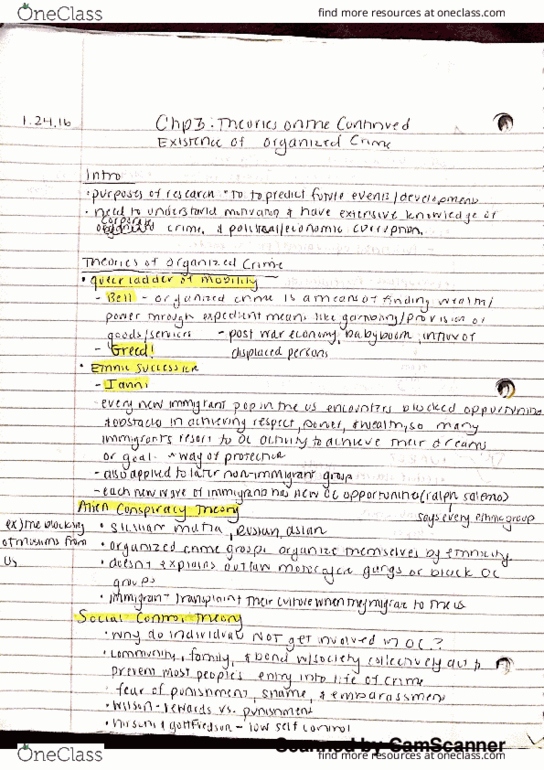 OneClass
find more resources at oneclass.com
1.24.16
Chp3: Theories on me Continued
Existence of Organized Crime
Intro
• purposes of research - to to predict future events/developments
• need to understand motivation & have extensive knowledge of
corporate
crime, & political/economic corruption.
Theories of Organized Crime
• queer ladder of mobility
- Bell - organized crime is a means of finding wealth/
power through expedient means like gambling/provision of
goods/services - post war economy, babyboom, influx of
- Greed! displaced persons
• Ethnic Succession
- Ianni
- every new immigrant pop in the US encounters blocked opportunities
& obstacles in achieving respect, power, & wealth, so many
immigrants resort to OC activity to achieve their dreams
or goal - way of protection
- also applied to later non-immigrant group
- each new wave of immigrants has new OC opportunities (ralph salerno)
says every ethnic group
Alien Conspiracy Theory
ex) the blocking
of muslims from
US
• Sicilian mafia, russian, asian
• organized crime groups organize themselves by ethnicity
• doesn't explains outlaw motorcycle gangs or black OC
groups
• immigrant transplant their culture when they migrate to the US
Social Control Theory
• Why do individual NOT get involved in OC?
• community, family, & bond w/society collectively act to
prevent most people's entry into life of crime
• fear of punishment, shame, & embarassment
• Wilson - rewards vs. punishment
• hirschi & gottfredson - low self control
Scanned by CamScanner
OneClass
find more resources at oneclass.com